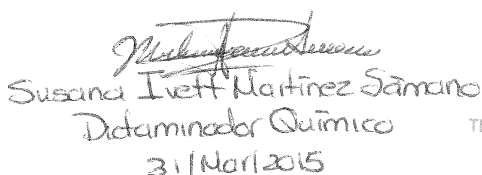 Susana Ivett Martínez Sámano
Dictaminador Químico
31/Mar/2015